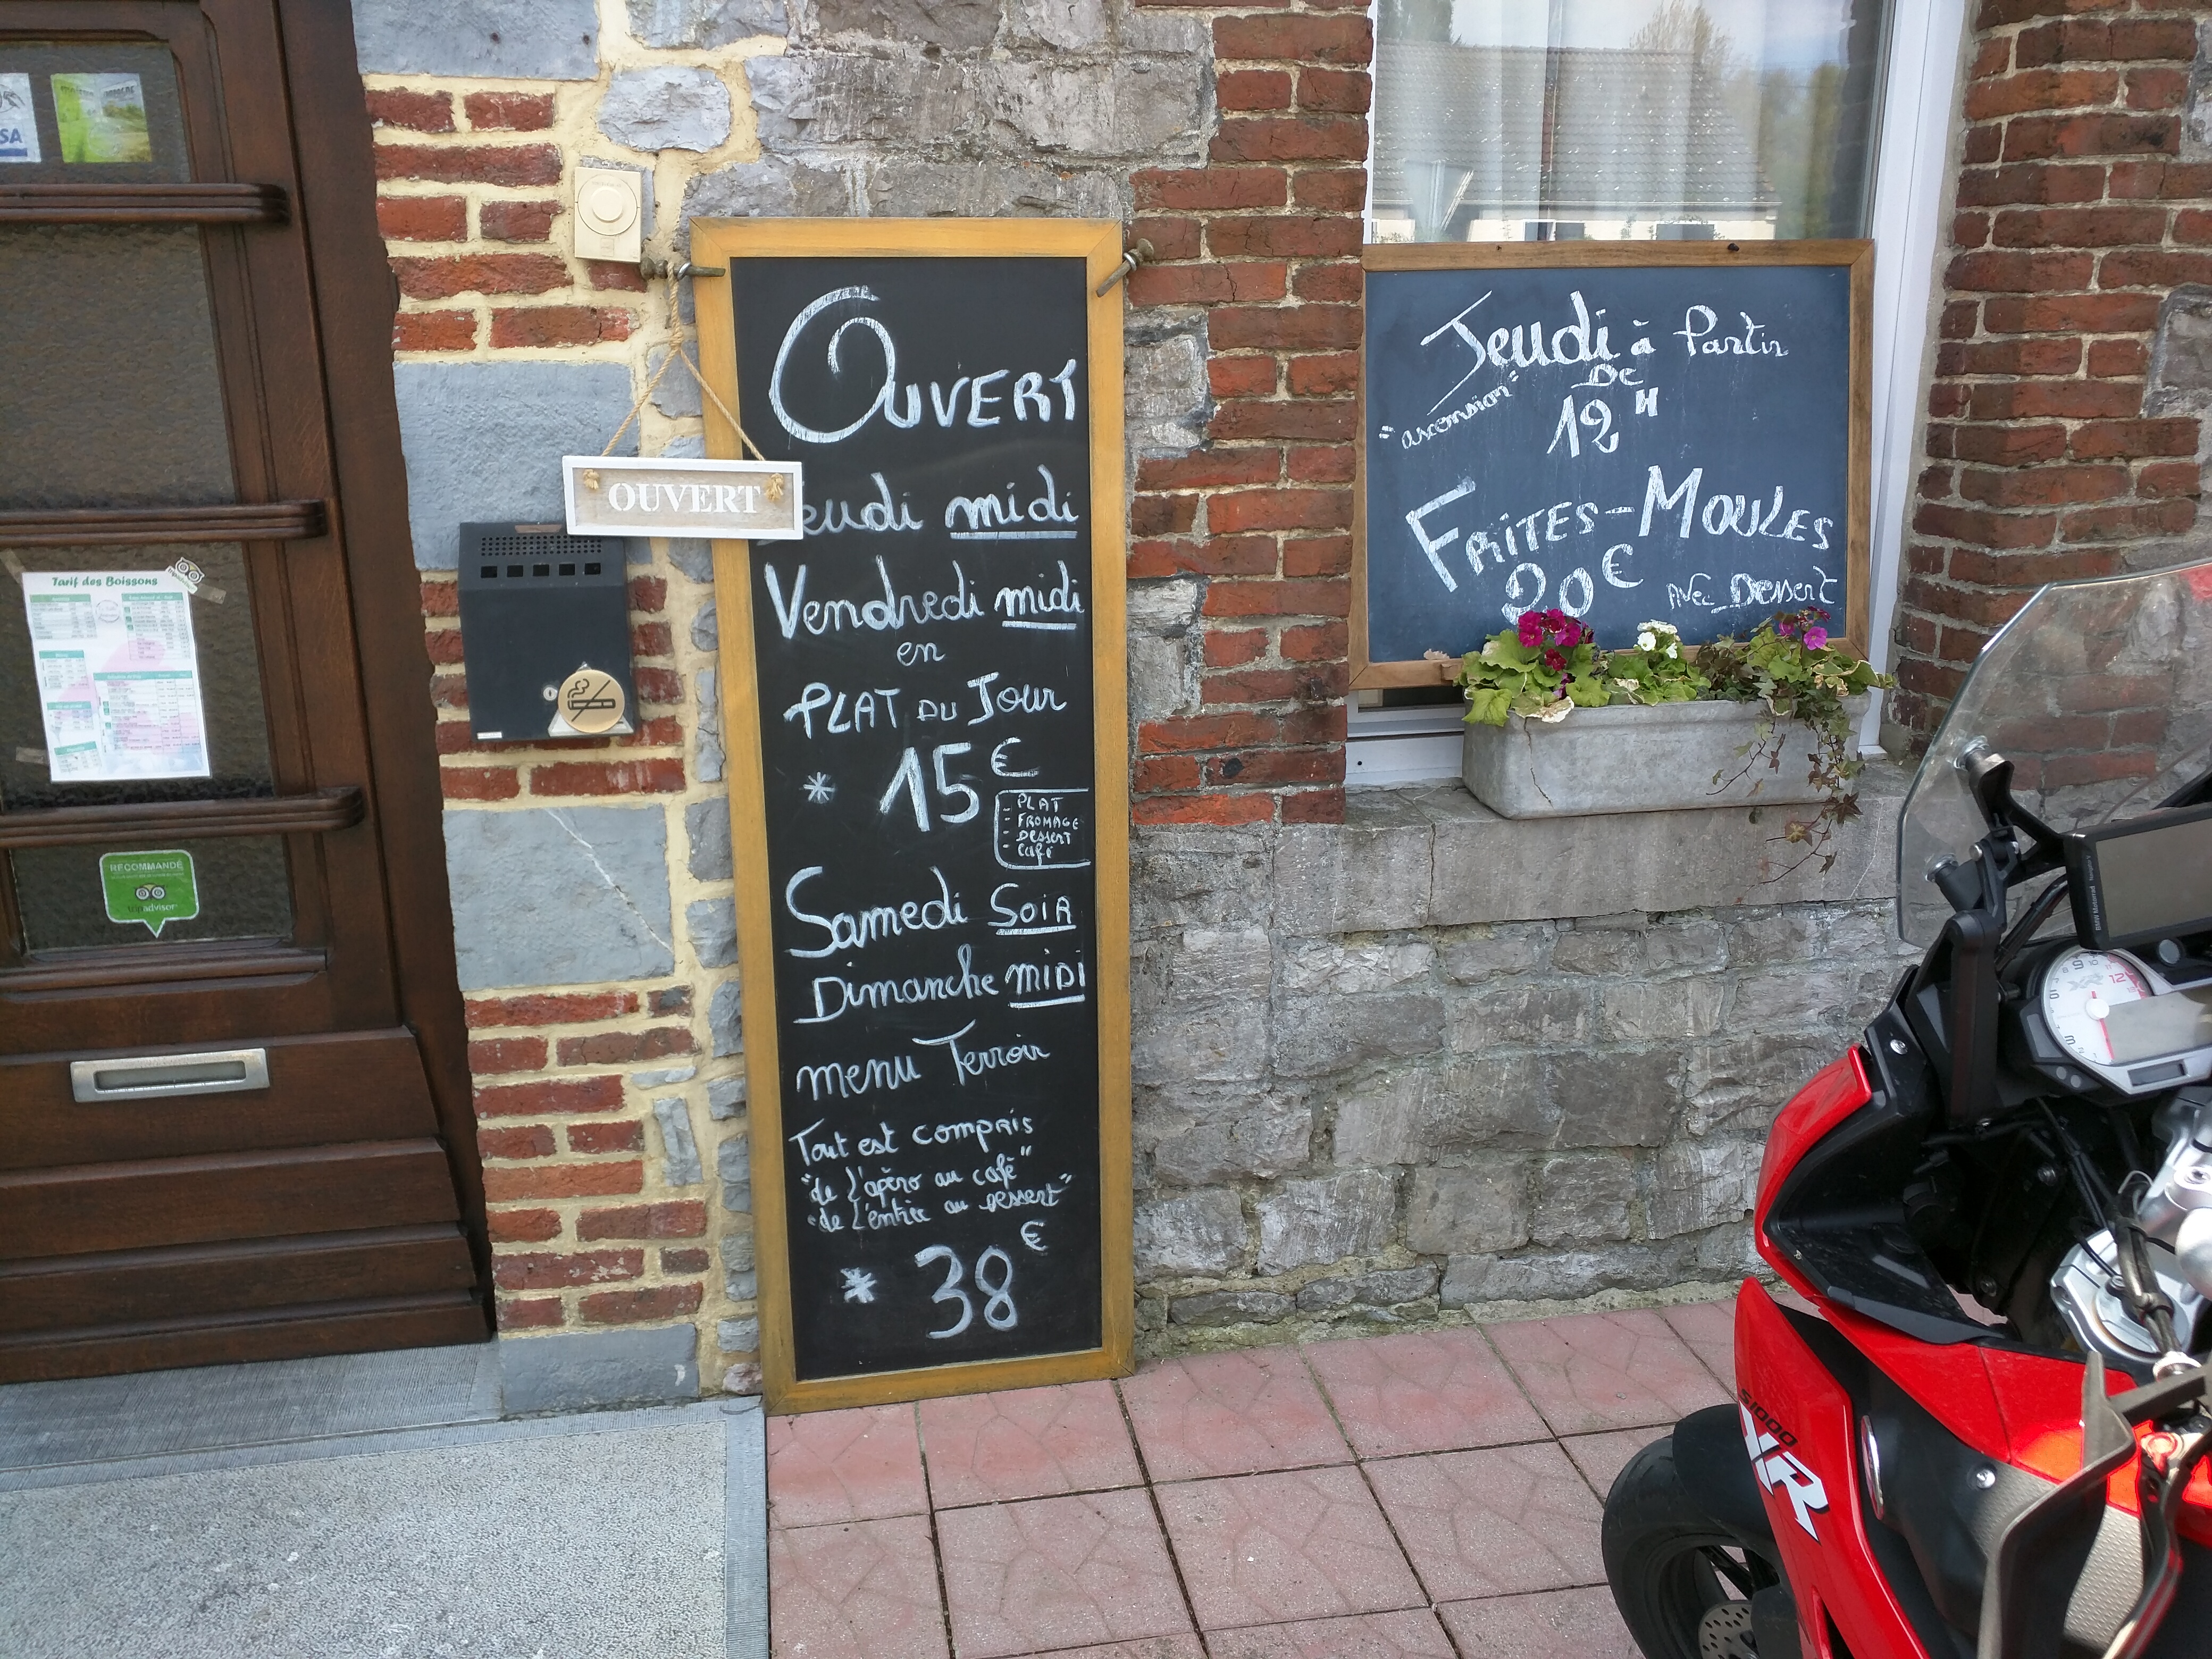 SA
Tarif des Boissons
RECOMMANDÉ
tripadvisor
OUVERT
OUVERT
Jeudi midi
Vendredi midi
en
PLAT DU JOUR
* 15 €
- PLAT
- FROMAGE
- Dessert
- Café
Samedi SOIR
Dimanche MIDI
menu Terroir
Tout est compris
"de l'apéro au café"
"de l'entrée au dessert"
* 38 €
Jeudi à Partir
"ascension" De
12 H
FRITES-MOULES
20 € Avec Dessert
BMW Motorrad
S1000
XR